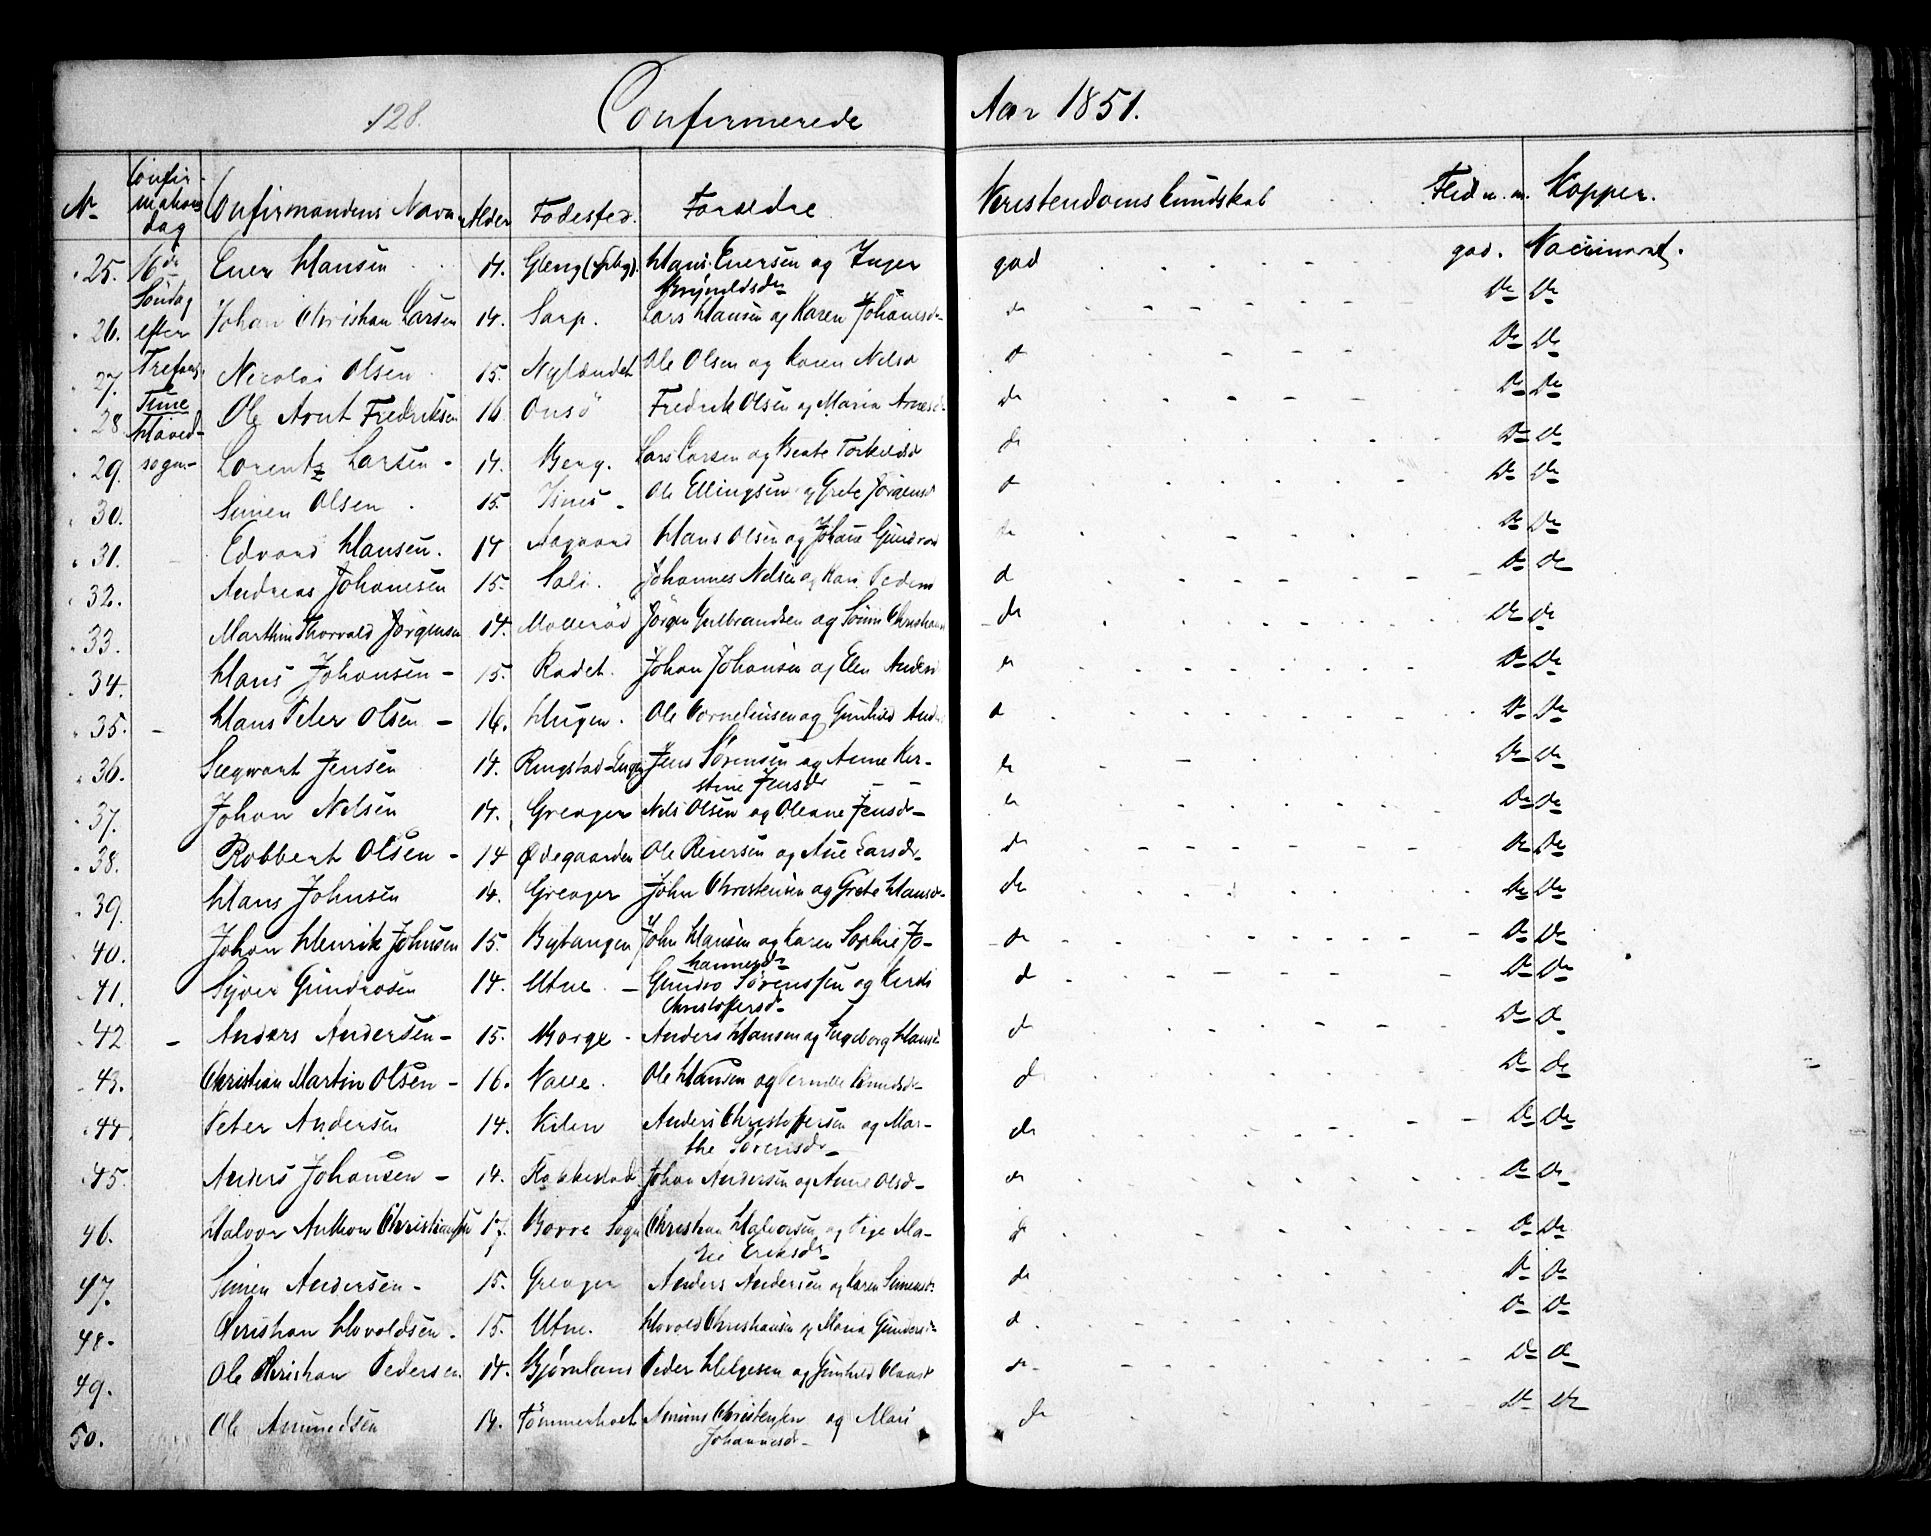 128. Confirmerede Aar 1851.
No Confirmations dag Confirmandens Navn Alder Fødested. Forældre Kristendoms kundskab Flid m. m. Kopper.
25. 16de Ener Hansen 14. Gleng Hans Enersen og Inger god god. Vaccineret.
Søndag
26. efter Johan Christian Larsen 14. Sarp. Lars Hansen og Karen Johanesdr do Do Do
27. Trefoldg. Nicolai Olsen 15. Nylændet Ole Olsen og Karen Nelsd d Do Do
28. Tune Hoved- Ole Arnt Fredriksen 16 Onsö Fredrik Olsen og Maria do Do Do
29. sogn- Lorentz Larsen - 14. Berg. Lars Larsen og Beate Torkildsd do Do Do
30. Simen Olsen 15. Ole Ellingsen og Grete Jörgensd d Do Do
31. Edvard Hansen. 14 Aagaard Hans Olsen og Johane do Do Do
32. Andreas Johanesen 15. Soli. Johannes Nelsen og Kari d Do Do
33. Marthin Thorvald Jørgensen 14. Jörgen Gulbrandsen og do Do Do
34. Hans Johansen - 15. Rødet. Johan Johansen og Elen Andersd d Do Do
35. - Hans Peter Olsen - 16. Haugen. Ole Corneliussen og Gunhild d Do Do
36. Segwart Jensen 14. Ringstad- Jens Sørensen og Anne Ker- d Do Do
stine Jensdr
37. Johan Nelsen 14. Greager Nels Olsen og Oleane Jensdr- d Do Do
38. Robbert Olsen - 14 Ødegaarden Ole Reiersen og Ane Larsdr- d Do Do
39. Hans Johnsen 14. Greager John Christensen og Grete Hansdr- do Do Do
40. Johan Henrik Johnsen 15. Bytangen John Hansen og Karen Sophie Jo- do Do Do
hannesdr
41. Syver Gundrosen 14. Utne. - Gundro Sørenssen og Kirsti d Do Do
Christoffersdr-
42 - Anders Andersen- 15. Borge. Anders Hansen og Ingeborg Hansd d Do Do
43. Christian Martin Olsen - 16. Valle. Ole Hansen og Pernille d Do Do
44. Peter Andersen 14. Kilen Anders Christoffersen og Mar- do Do Do
the Sørensdr-
45. Anders Johansen - 14. Johan Andersen og Anne Olsd- do Do Do
46. Halvor Anthon Christiansen 17. Borre Sogn Christian Halvorsen og Ma- d Do Do
Eriksdr-
47. Simen Andersen - 15. Greager Anders Andersen og Karen Simensdr. do Do Do
48. Christian Hovoldsen. 15. Utne. Hovold Christiansen og Maria Gundersd- d Do Do
49. Ole Christian Pedersen. 14. Bjørnland Peder Helgesen og Gunhild Olavesd d- Do Do
50. Ole Amundsen 14. Tömmerholt Christensen og Mari do Do Do
Johannesdr-